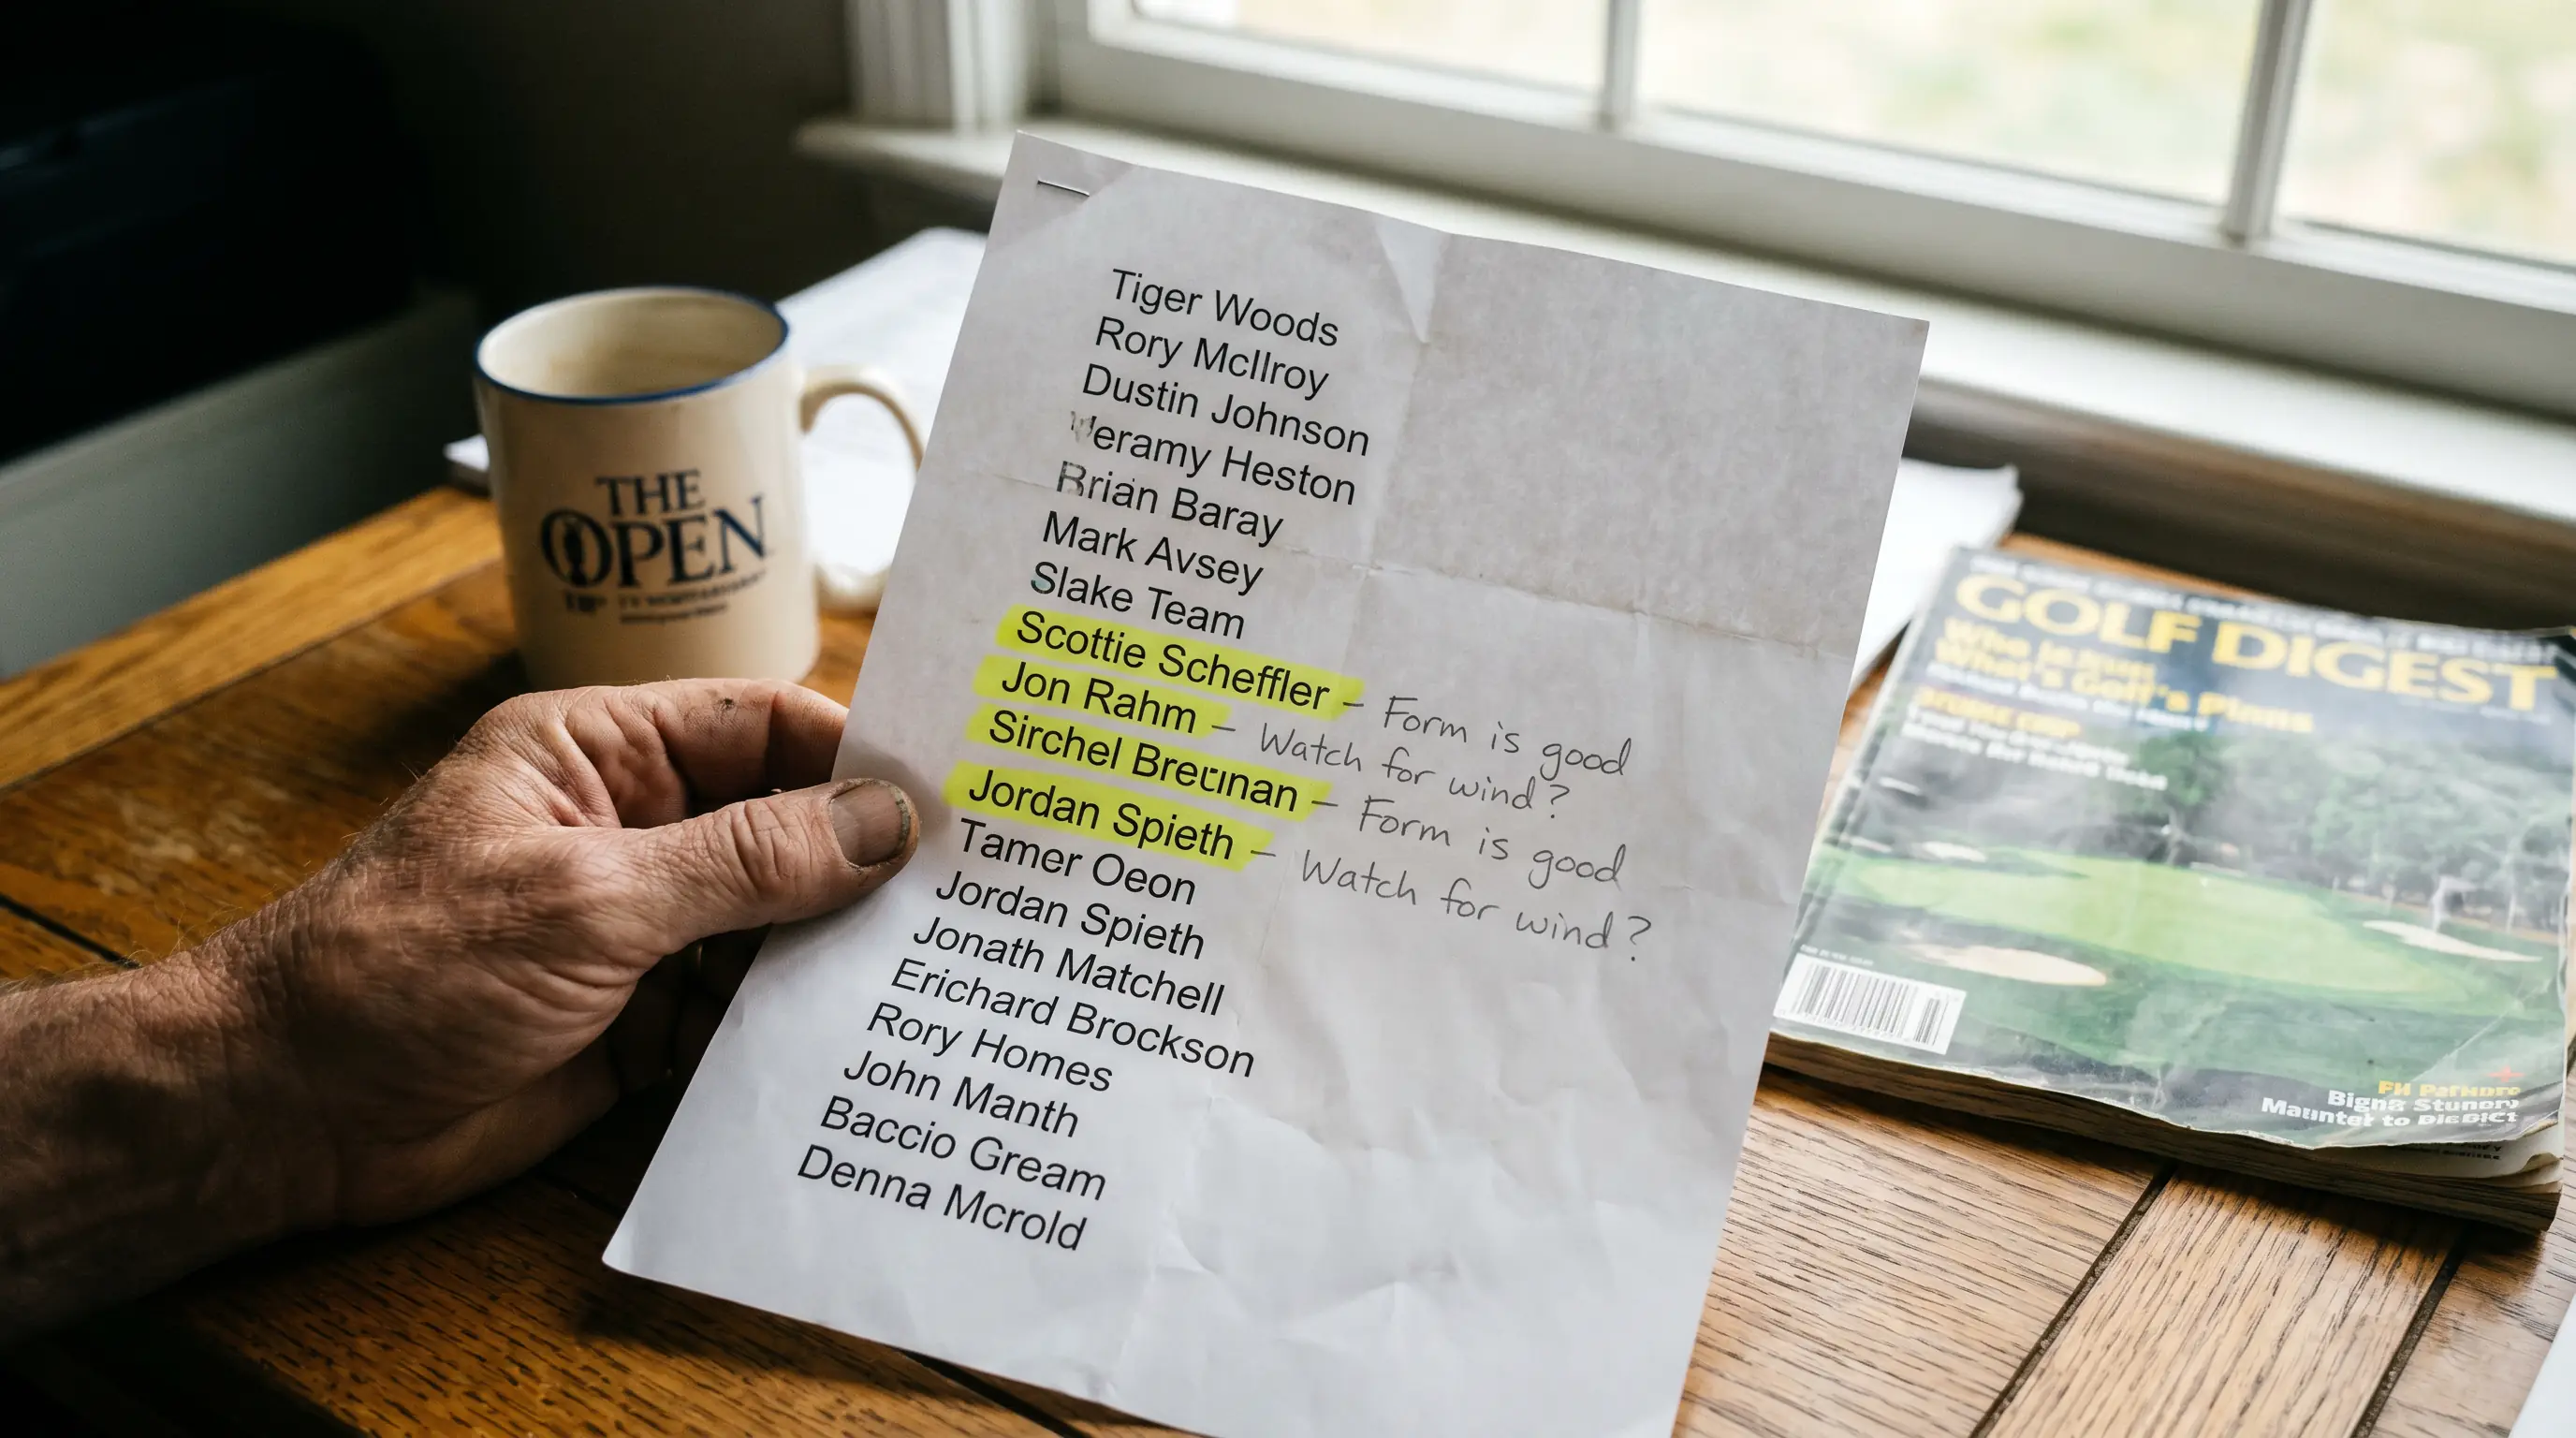 THE
OPEN
Tiger Woods
Rory McIlroy
Dustin Johnson
Heston
Brian Baray
Mark Avsey
Slake Team
Scottie Scheffler – Form is good
Jon Rahm – Watch for wind?
Sirchel Breunan – Form is good
Jordan Spieth – Watch for wind?
Tamer Oeon
Jordan Spieth
Jonath Matchell
Erichard Brockson
Rory Homes
John Manth
Baccio Gream
Denna Mcrold
GOLF DIGEST
What's Golf's Plans